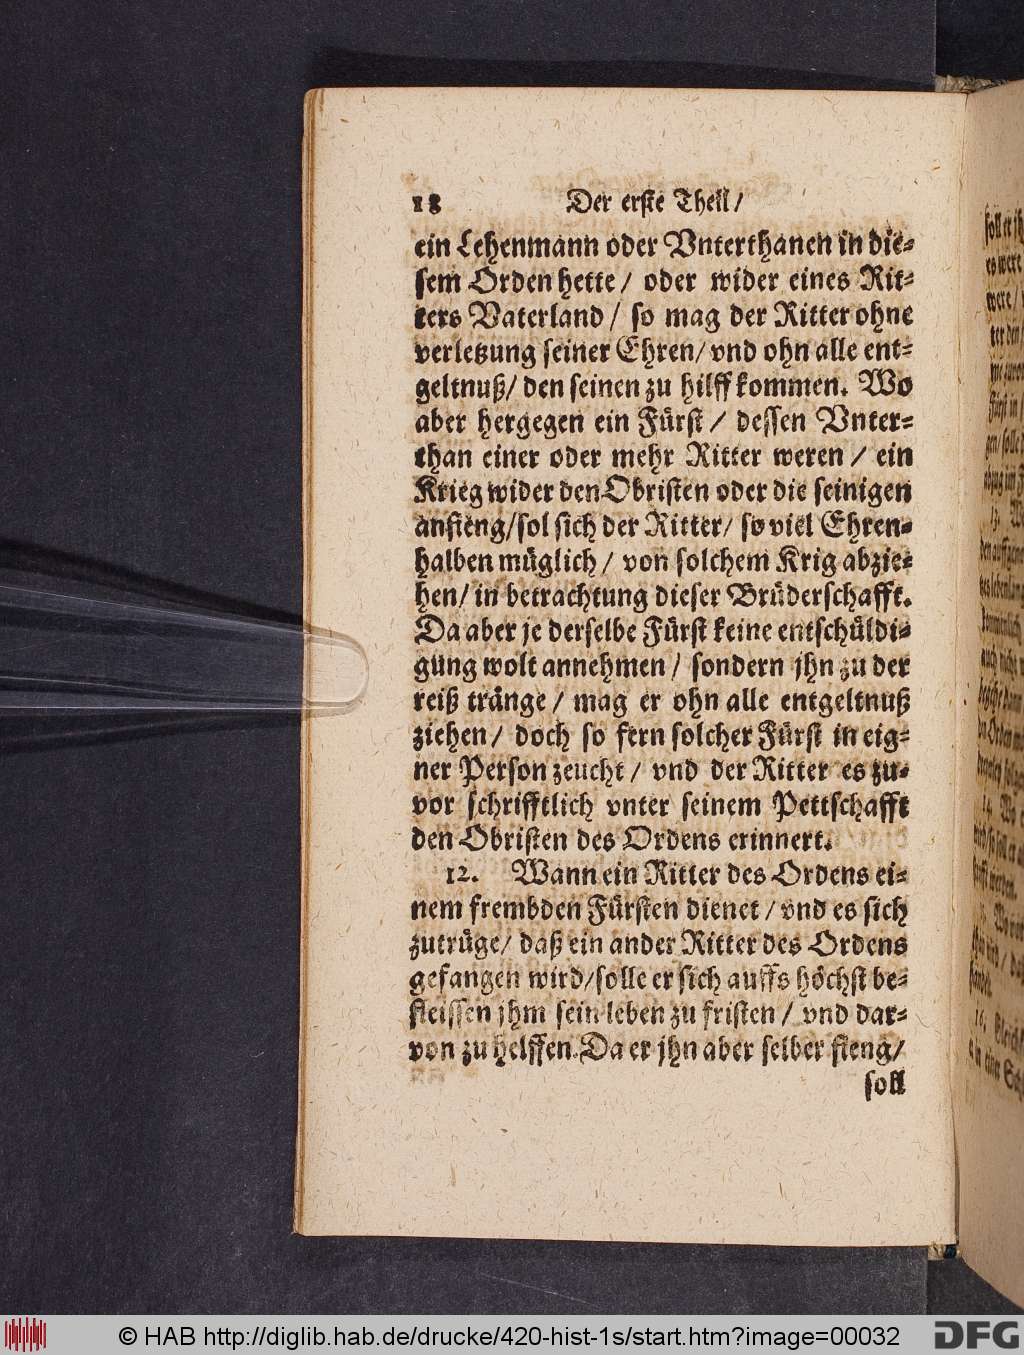 18 Der erste Theil/
ein Lehenmann oder Vnterthanen in die-
sem Orden hette / oder wider eines Rit-
ters Vaterland / so mag der Ritter ohne
verletzung seiner Ehren/ vnd ohn alle ent-
geltnuß/ den seinen zu hilff kommen. Wo
aber hergegen ein Fürst / dessen Vnter-
than einer oder mehr Ritter weren / ein
Krieg wider den Obristen oder die seinigen
anfieng/sol sich der Ritter/ so viel Ehren-
halben müglich / von solchem Krig abzie-
hen/ in betrachtung dieser Brüderschafft.
Da aber je derselbe Fürst keine entschüldi-
gung wolt annehmen / sondern jhn zu der
reiß tränge / mag er ohn alle entgeltnuß
ziehen / doch so fern solcher Fürst in eig-
ner Person zeucht / vnd der Ritter es zu-
vor schrifftlich vnter seinem Pettschafft
den Obristen des Ordens erinnert.
12. Wann ein Ritter des Ordens ei-
nem frembden Fürsten dienet / vnd es sich
zutrüge/ daß ein ander Ritter des Ordens
gefangen wird/solle er sich auffs höchst be-
fleissen jhm sein leben zu fristen / vnd dar-
von zu helffen. Da er jhn aber selber fieng/
soll
© HAB http://diglib.hab.de/drucke/420-hist-1s/start.htm?image=00032
DFG